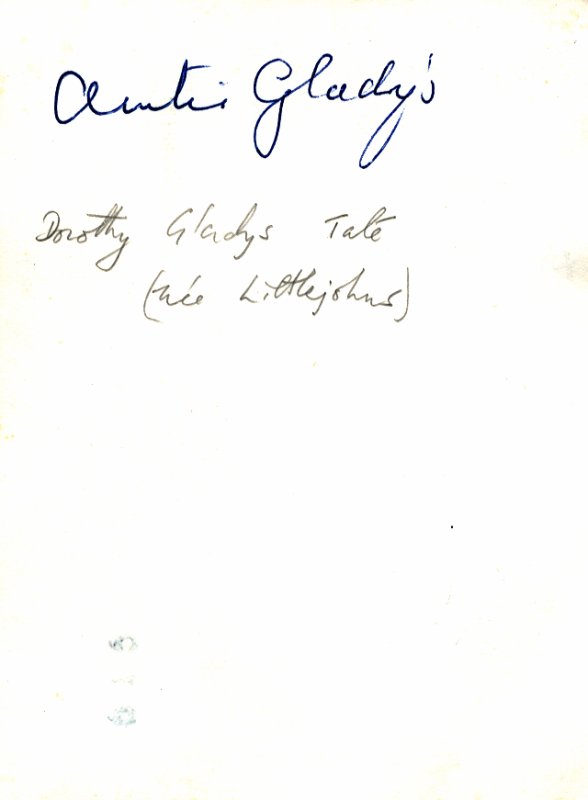 Auntie Gladys
Dorothy Gladys Tate
(née Littlejohns)